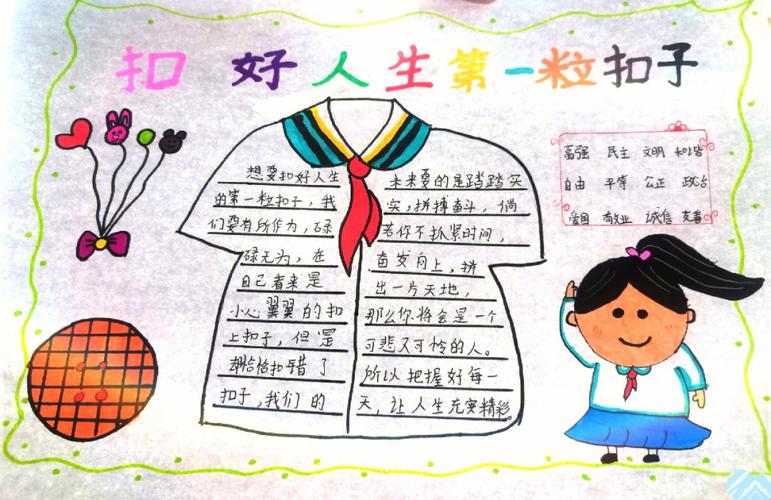 扣好人生第一粒扣子
想要扣好人生
的第一粒扣子,我
们要有所作为,碌
碌无为,在
自己看来是
小心翼翼的扣
上扣子,但是
却恰恰扣错了
扣子,我们的
未来要的是踏踏实
实,拼搏奋斗,倘
若你不抓紧时间,
奋发向上,拼
出一片天地,
那么你将会是一个
可悲又可怜的人。
所以把握好每一
天,让人生充实精彩。
富强 民主 文明 和谐
自由 平等 公正 政治
爱国 敬业 诚信 友善